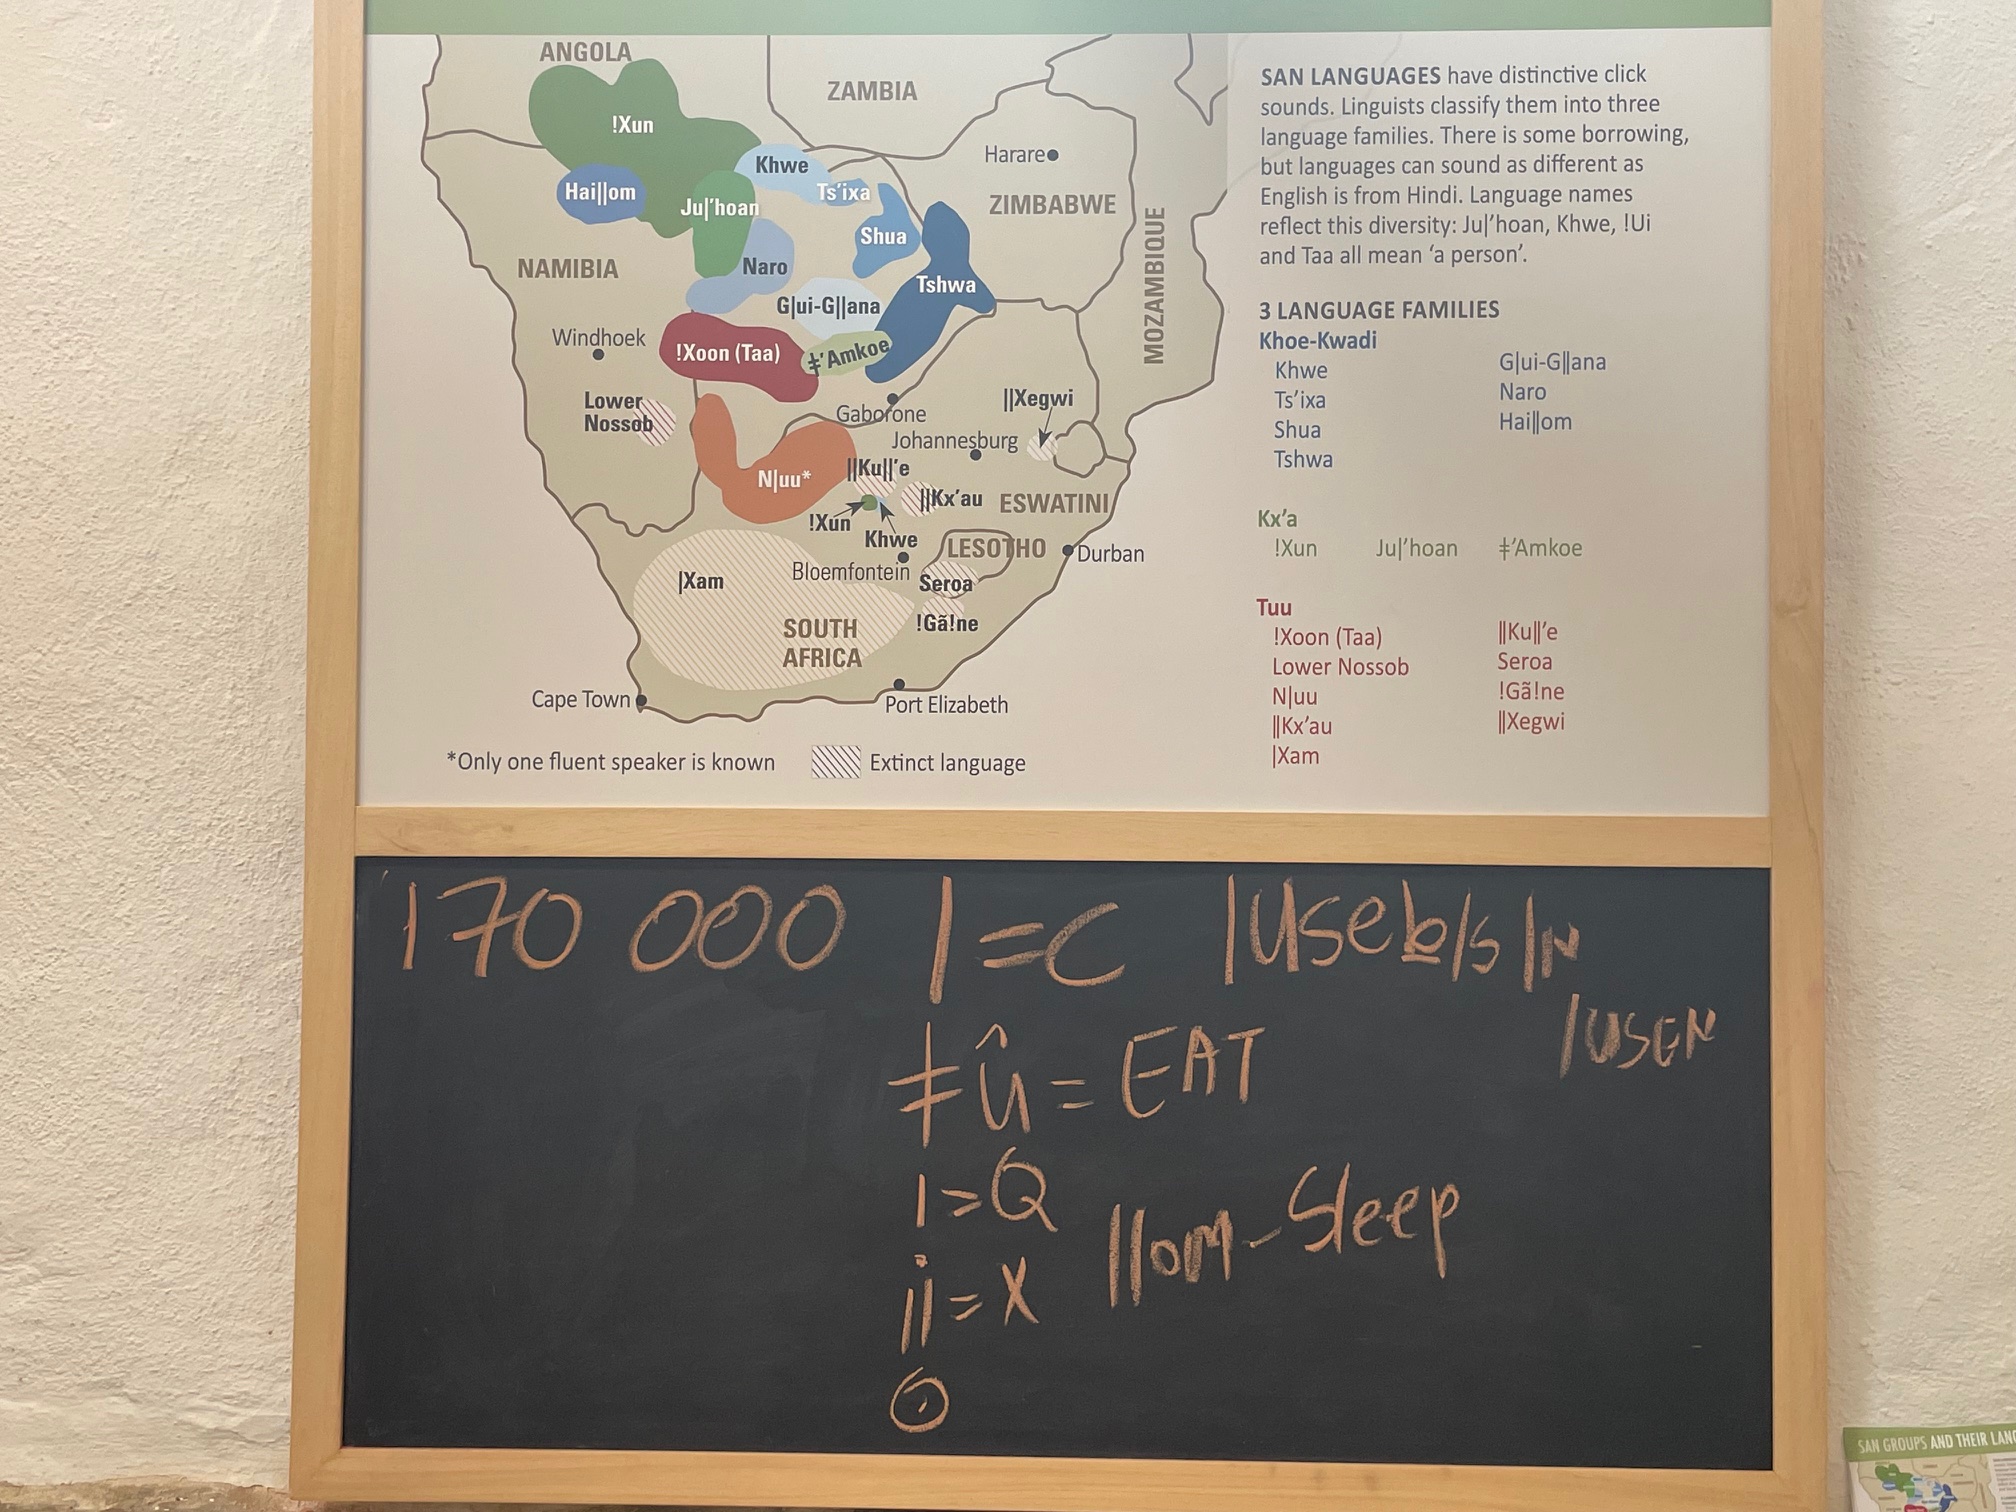 ANGOLA
ZAMBIA
!Xun
Harare
Khwe
Hai||om
Ts'ixa
Ju|'hoan
ZIMBABWE
Shua
MOZAMBIQUE
NAMIBIA
Naro
Tshwa
G|ui-G||ana
Windhoek
!Xoon (Taa)
ǂ'Amkoe
Lower
Nossob
||Xegwi
Gaborone
Johannesburg
||Ku||'e
N|uu*
||Kx'au
ESWATINI
!Xun
Khwe
LESOTHO
Durban
Bloemfontein
|Xam
Seroa
!Gã!ne
SOUTH
AFRICA
Cape Town
Port Elizabeth
*Only one fluent speaker is known
Extinct language
SAN LANGUAGES have distinctive click
sounds. Linguists classify them into three
language families. There is some borrowing,
but languages can sound as different as
English is from Hindi. Language names
reflect this diversity: Ju|'hoan, Khwe, !Ui
and Taa all mean 'a person'.
3 LANGUAGE FAMILIES
Khoe-Kwadi
Khwe
Ts'ixa
Shua
Tshwa
G|ui-G||ana
Naro
Hai||om
Kx'a
!Xun Ju|'hoan ǂ'Amkoe
Tuu
!Xoon (Taa)
Lower Nossob
N|uu
||Kx'au
|Xam
||Ku||'e
Seroa
!Gã!ne
||Xegwi
170 000 | = C |Useb/s |N
|USEN
ǂû = EAT
| = Q
|| = X ||om - Sleep
ʘ
SAN GROUPS AND THEIR LANG